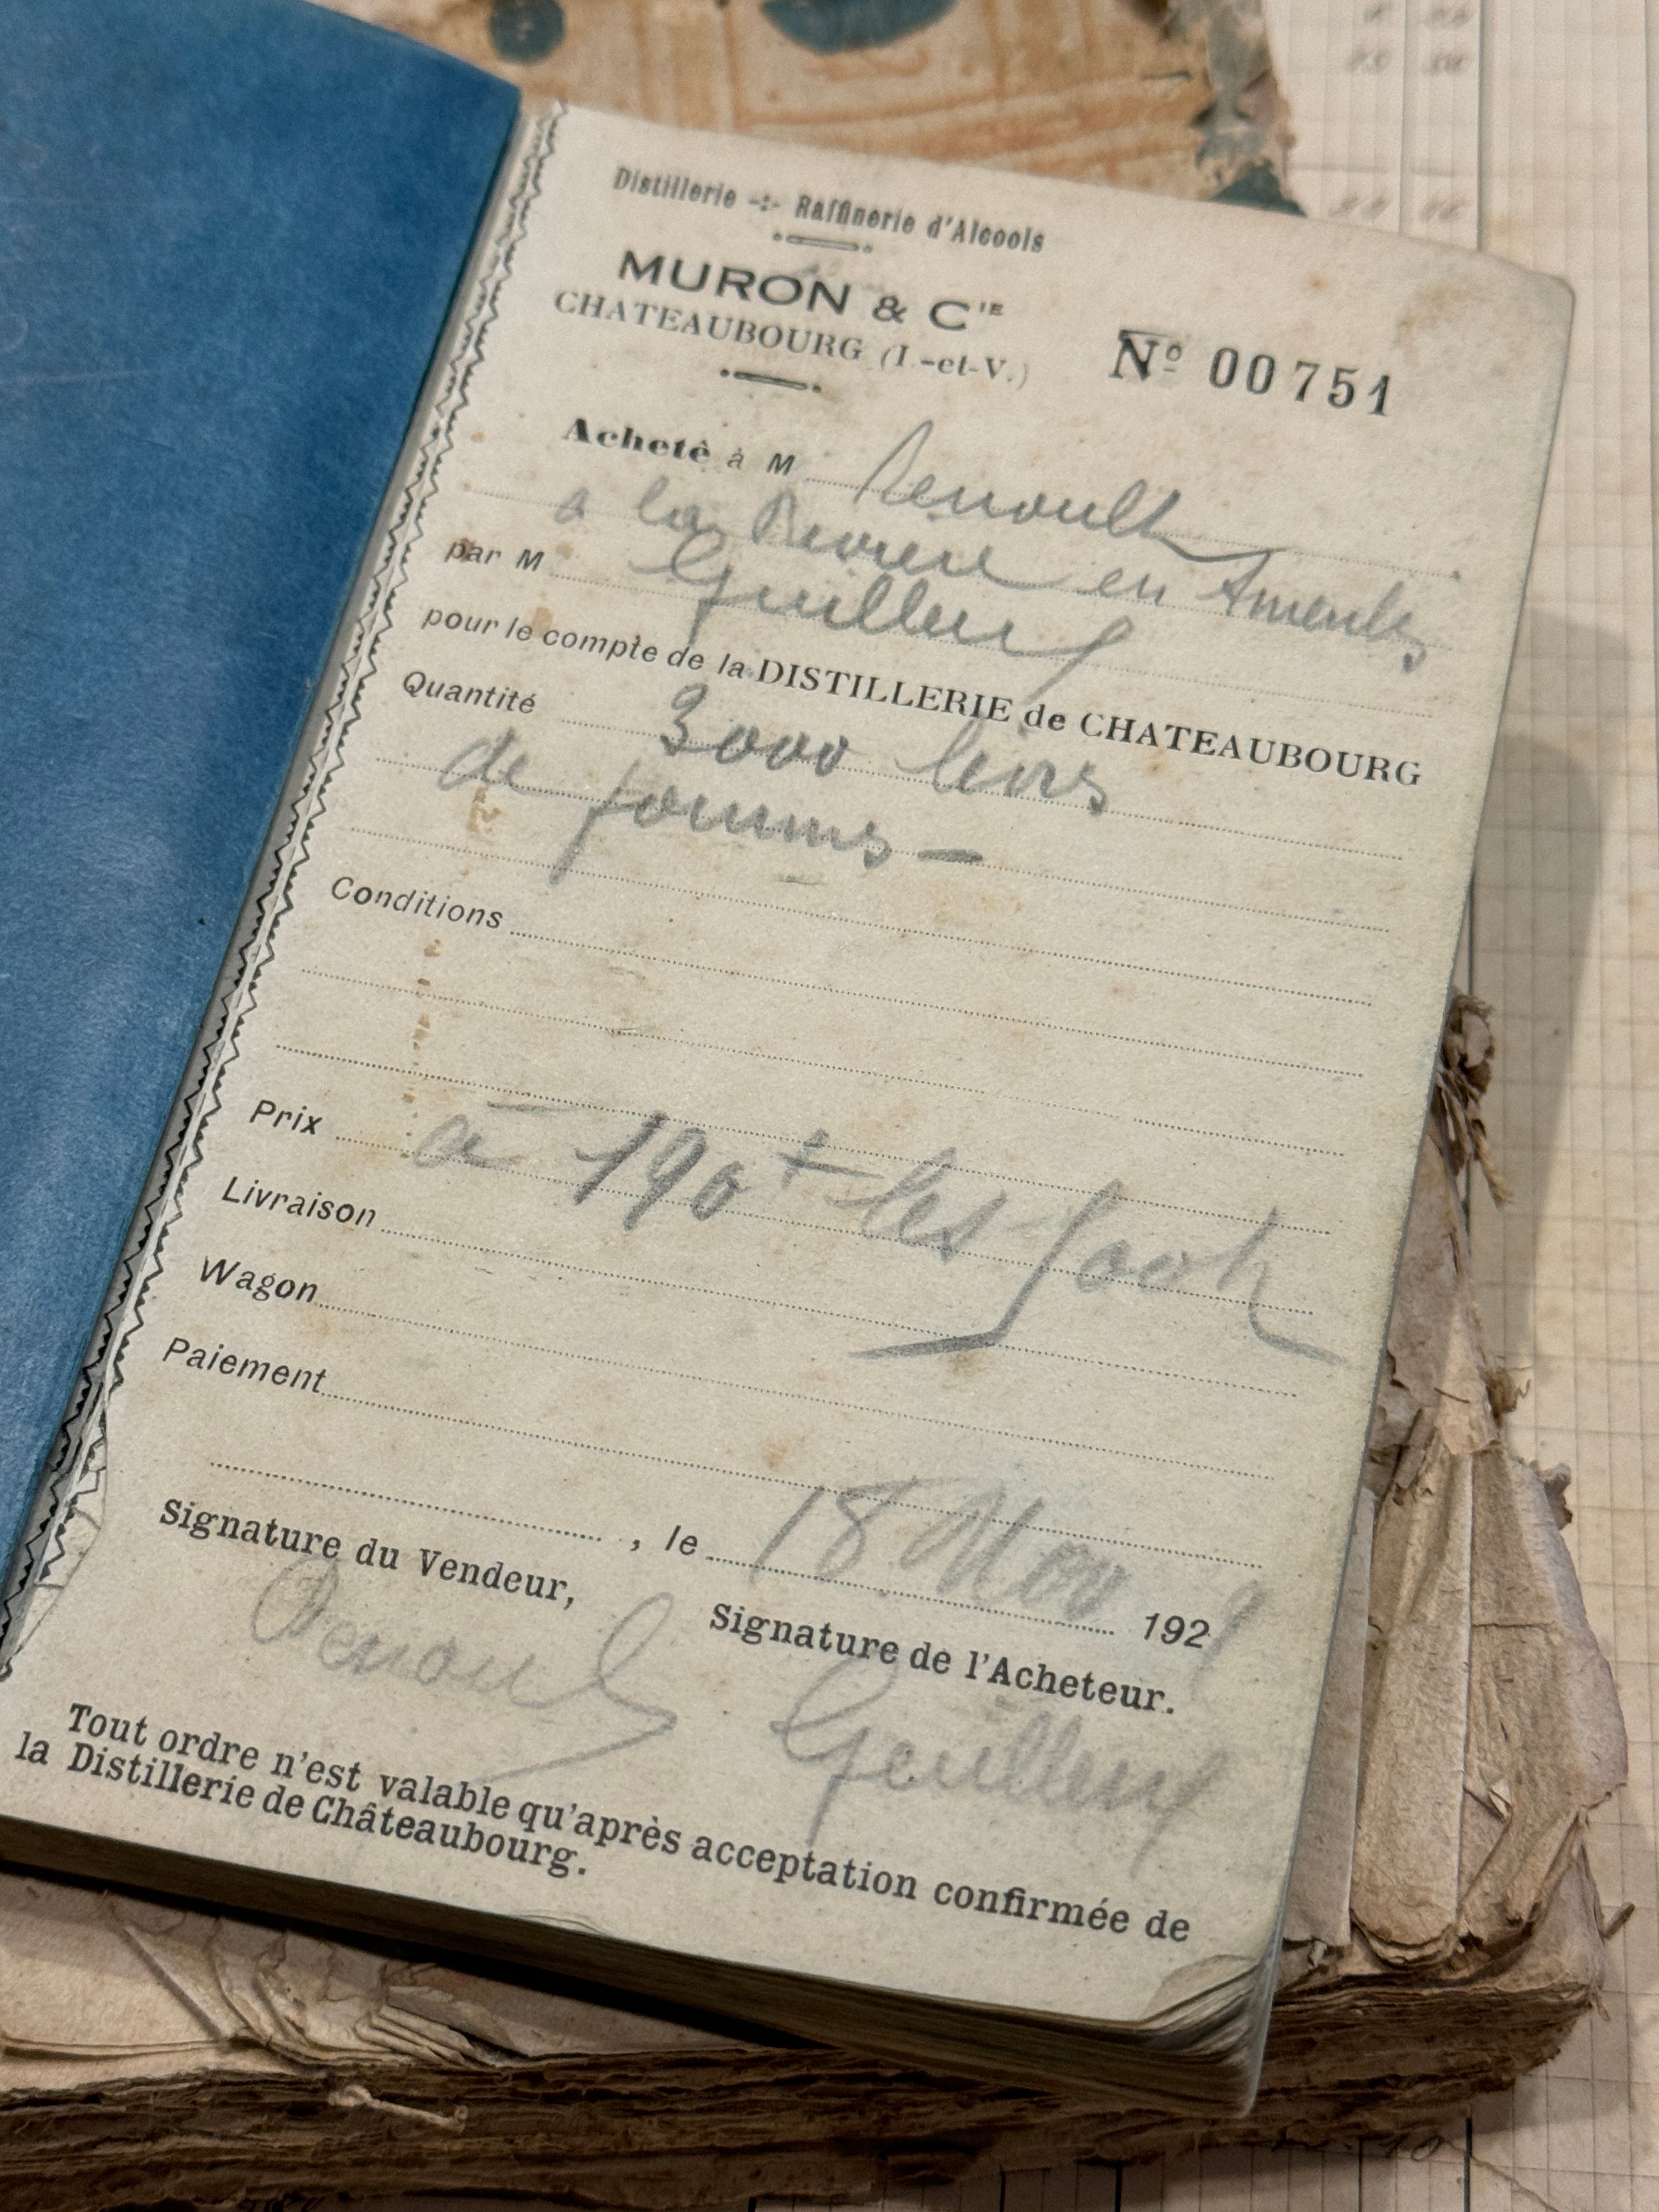 Distillerie -:- Raffinerie d'Alcools
MURON & Cie
CHATEAUBOURG (I.-et-V.)
No 00751
Acheté à M Renoult
a la Riviere en
par M Guillery
pour le compte de la DISTILLERIE de CHATEAUBOURG
Quantité 3000
de pommes -
Conditions
Prix à 190f les
Livraison
Wagon
Paiement
, le 18 Nov 192
Signature du Vendeur,
Signature de l'Acheteur.
Renoult
Guillery
Tout ordre n'est valable qu'après acceptation confirmée de
la Distillerie de Châteaubourg.